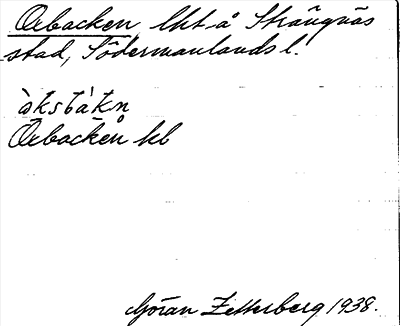 Oxbacken, lht å Strängnäs
stad, Södermanlands l.
òksbàkn
Oxbacken kb
Göran Zetterberg 1938.